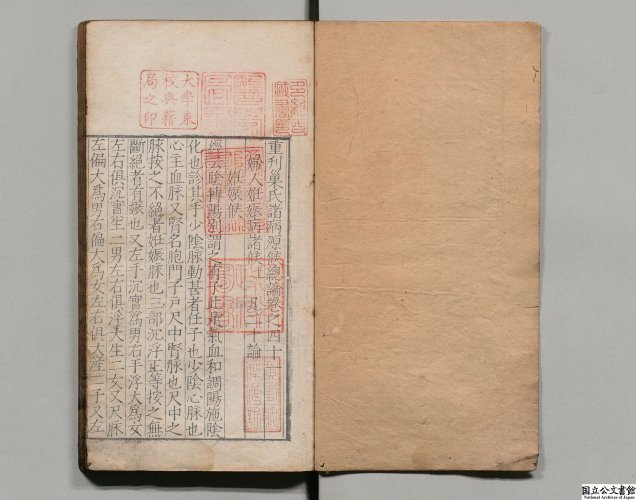 重刊巢氏諸病源候總論卷之四十一
婦人妊娠病諸候上 凡二十論
妊娠候
經云陰搏陽別謂之有子此是氣血和調陽施陰
化也診其手少陰脉動甚者任子也少陰心脉也
心主血脉又腎名胞門子戶尺中腎脉也尺中之
脉按之不絕者妊娠脉也三部沉浮正等按之無
斷絕者有娠也又左手沉實爲男右手浮大爲女
左右俱沉實生二男左右俱浮大生二女又尺脉
左偏大爲男右偏大爲女左右俱大產二子又左
大學東
校典籍
局之印
国立公文書館
National Archives of Japan